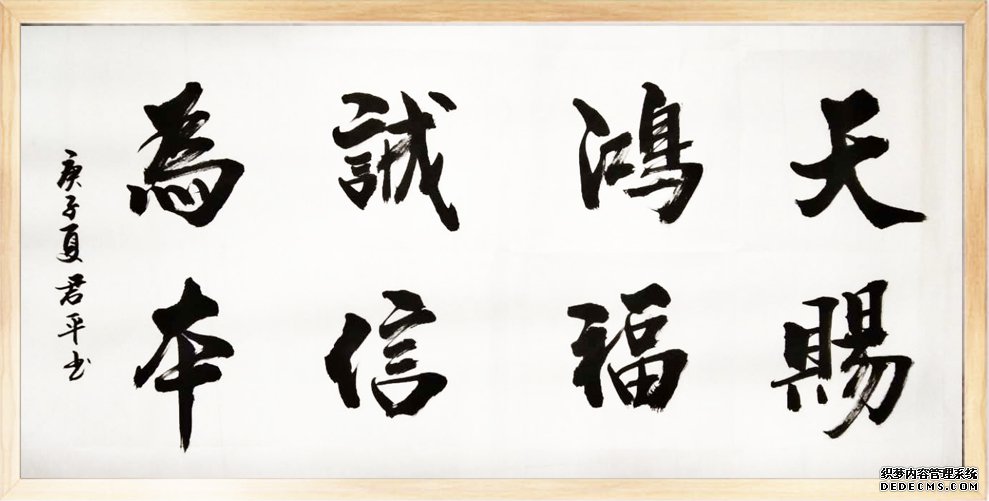 天賜
鴻福
誠信
為本
庚子夏君平书
织梦内容管理系统
DEDECMS.COM